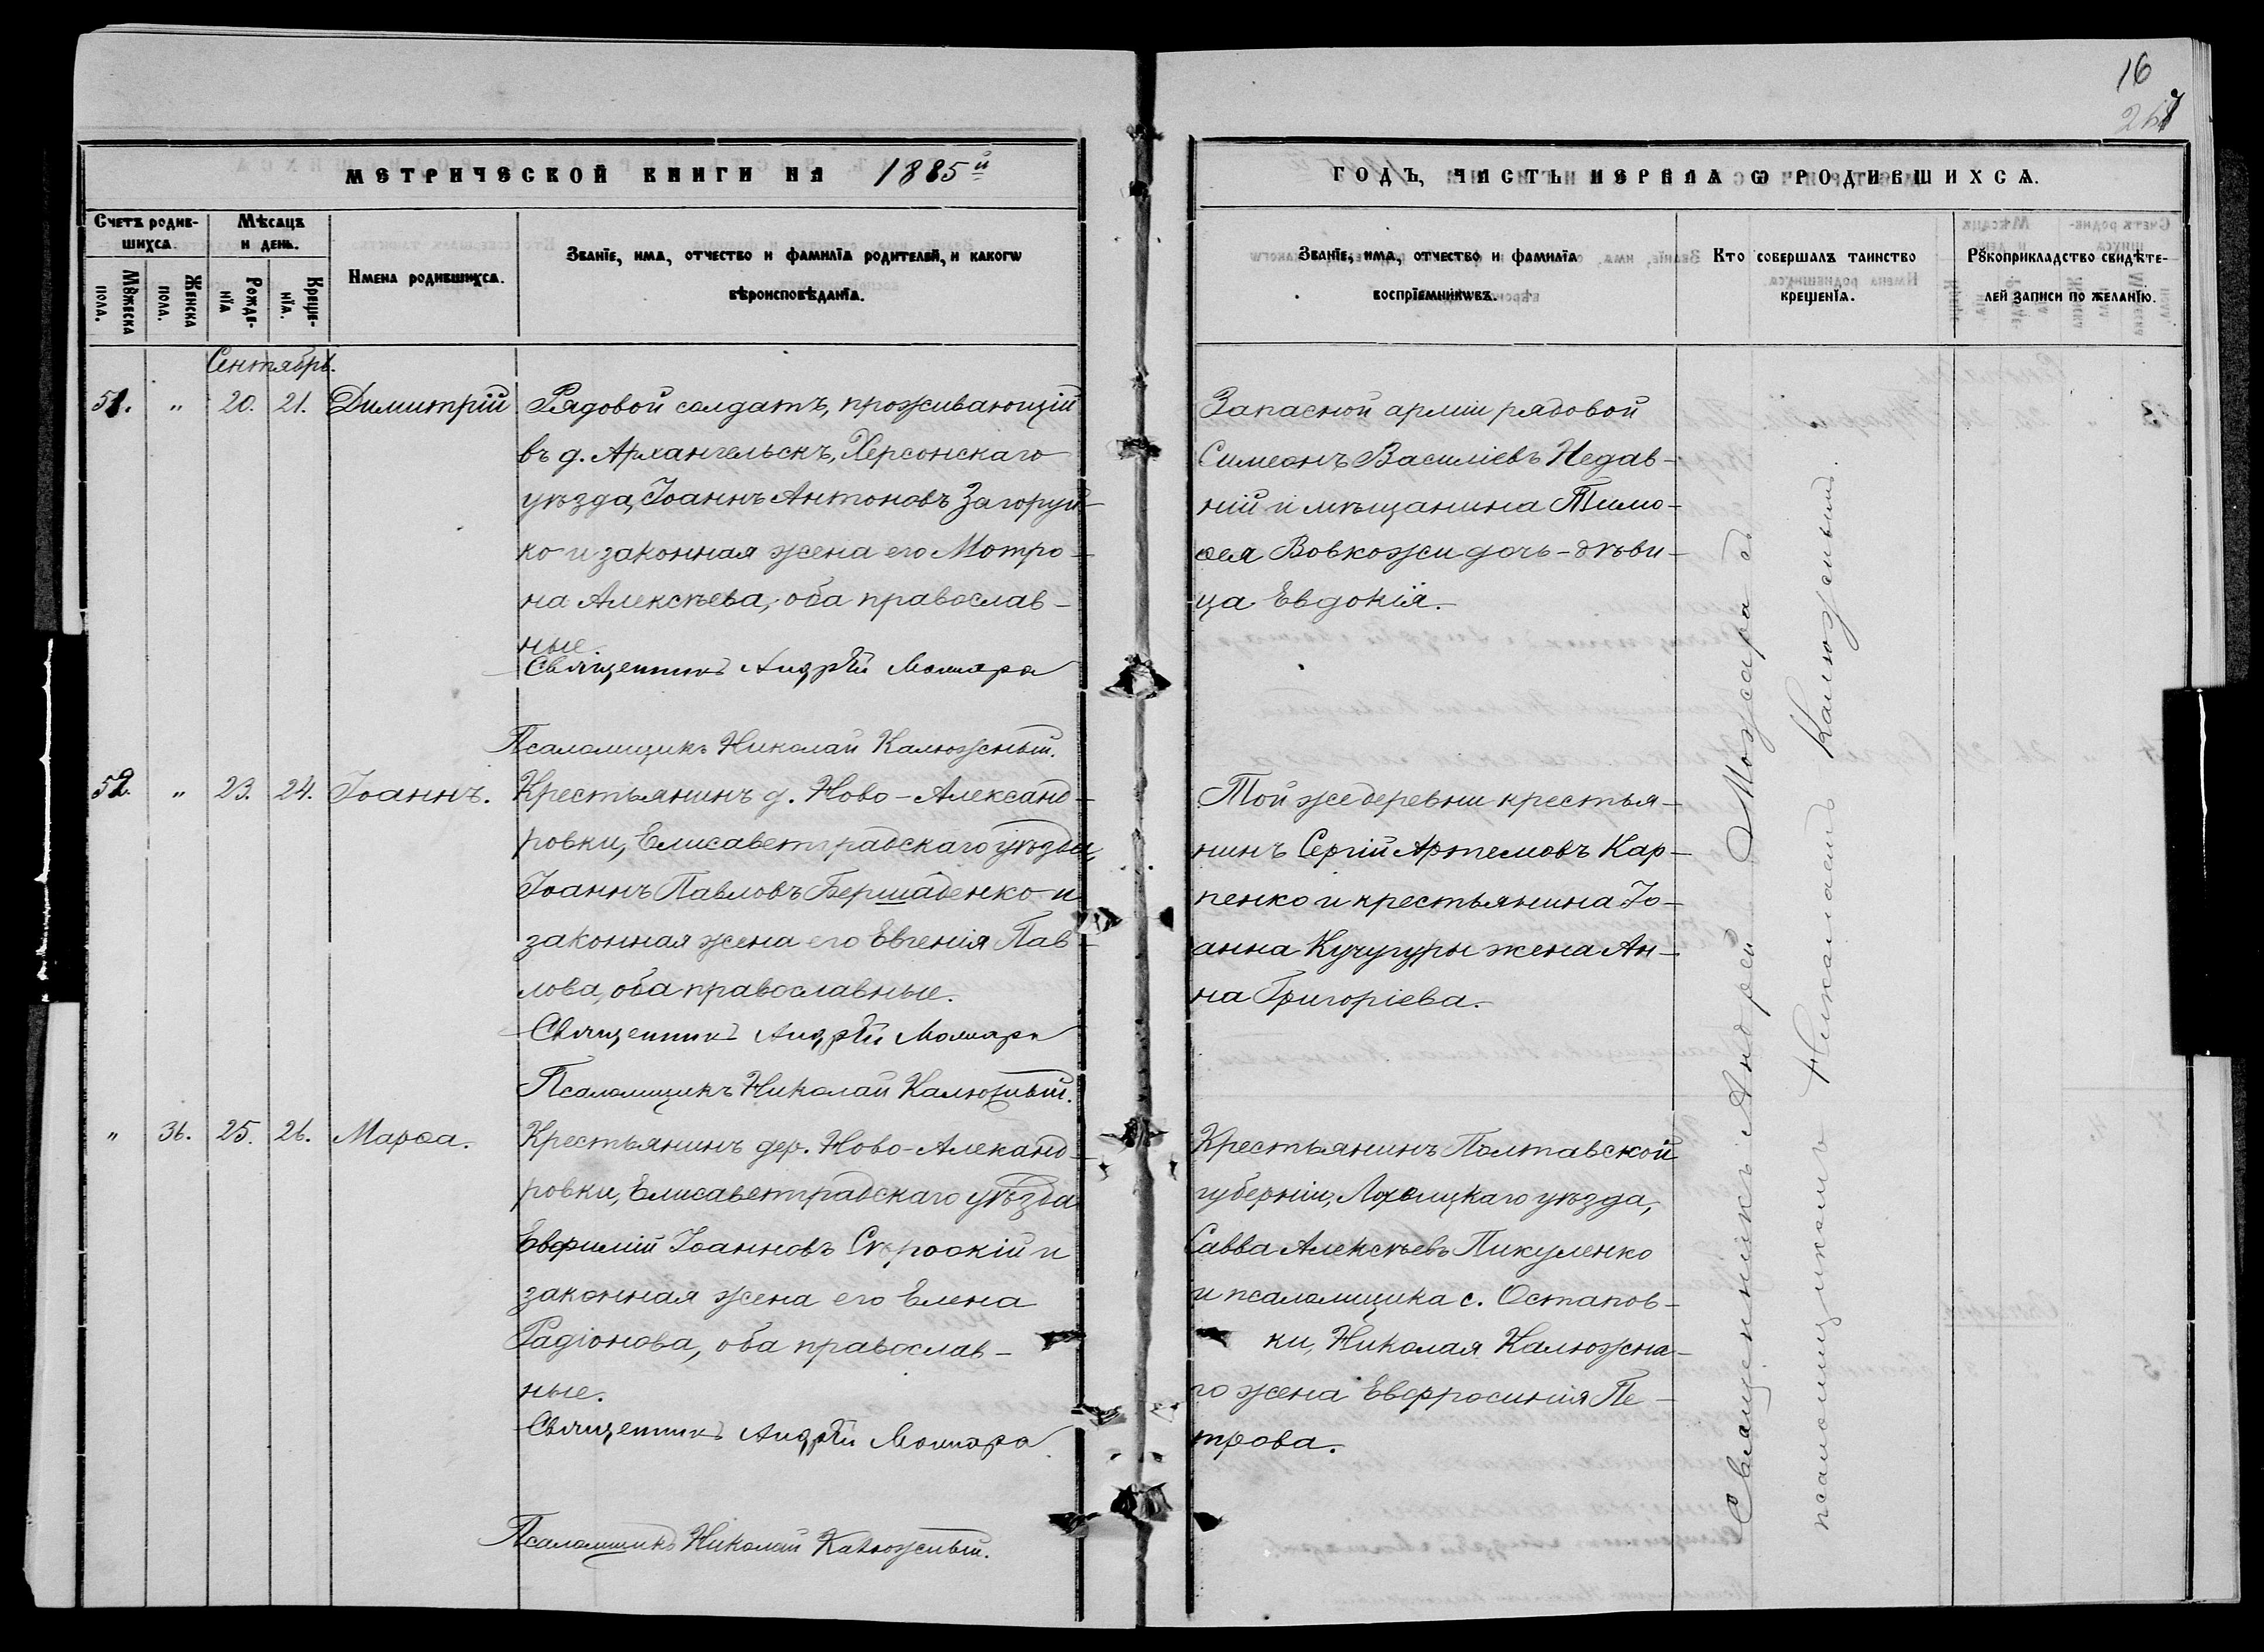 16
МЕТРИЧЕСКОЙ КНИГИ НА 1885й
ГОДЪ, ЧАСТЬ ПЕРВАѦ Ѡ РОДИВШИХСѦ.
Счетъ родив-
шихсѧ.
Мѣсѧцъ
и день.
Мꙋжеска
пола.
Женска
пола.
Рожде-
нїѧ
Креще-
нїѧ.
Имена родившихсѧ.
Званїе, имѧ, отчество и фамилїѧ родителей, и какогѡ
вѣроисповѣданїѧ.
Званїе, имѧ, отчество и фамилїѧ
воспрїемникѡвъ.
Кто совершалъ таинство
крещенїѧ.
Рꙋкоприкладство свидѣте-
лей записи по желанїю.
Сентябрь.
51. " 20. 21. Димитрій
Рядовой солдатъ, проживающій
въ д. Архангельскъ, Херсонскаго
уѣзда, Іоаннъ Антоновъ Загоруй-
ко и законная жена его Мотро-
на Алексѣева, оба православ-
ные.
Священникъ Андрѣй Можара
Псаломщикъ Николай Калюжный.
Запасной арміи рядовой
Симеонъ Василіевъ Недав-
ній и мѣщанина Тимо-
ѳея Вовкожи дочь-дѣви-
ца Евдокія.
52. " 23. 24. Іоаннъ.
Крестьянинъ д. Ново-Александ-
ровки, Елисаветградскаго уѣзда,
Іоаннъ Павловъ Бершаденко и
законная жена его Евгенія Пав-
лова, оба православные.
Священникъ Андрѣй Можара
Псаломщикъ Николай Калюжный.
Той же деревни крестья-
нинъ Сергій Артемовъ Кар-
пенко и крестьянина Іо-
анна Кучугуры жена Ан-
на Григоріева.
" 36. 25. 26. Марѳа.
Крестьянинъ дер. Ново-Александ-
ровки, Елисаветградскаго уѣзда
Евфимій Іоанновъ Сѣроокій и
законная жена его Елена
Радіонова, оба православ-
ные.
Священникъ Андрѣй Можара
Псаломщикъ Николай Калюжный.
Крестьянинъ Полтавской
губерніи, Лохвицкаго уѣзда,
Савва Алексѣевъ Пикуленко
и псаломщика с. Остапов-
ки, Николая Калюжна-
го жена Евфросинія Пе-
трова.
Священникъ Андрей Можара съ
псаломщикомъ Николаемъ Калюжнымъ.